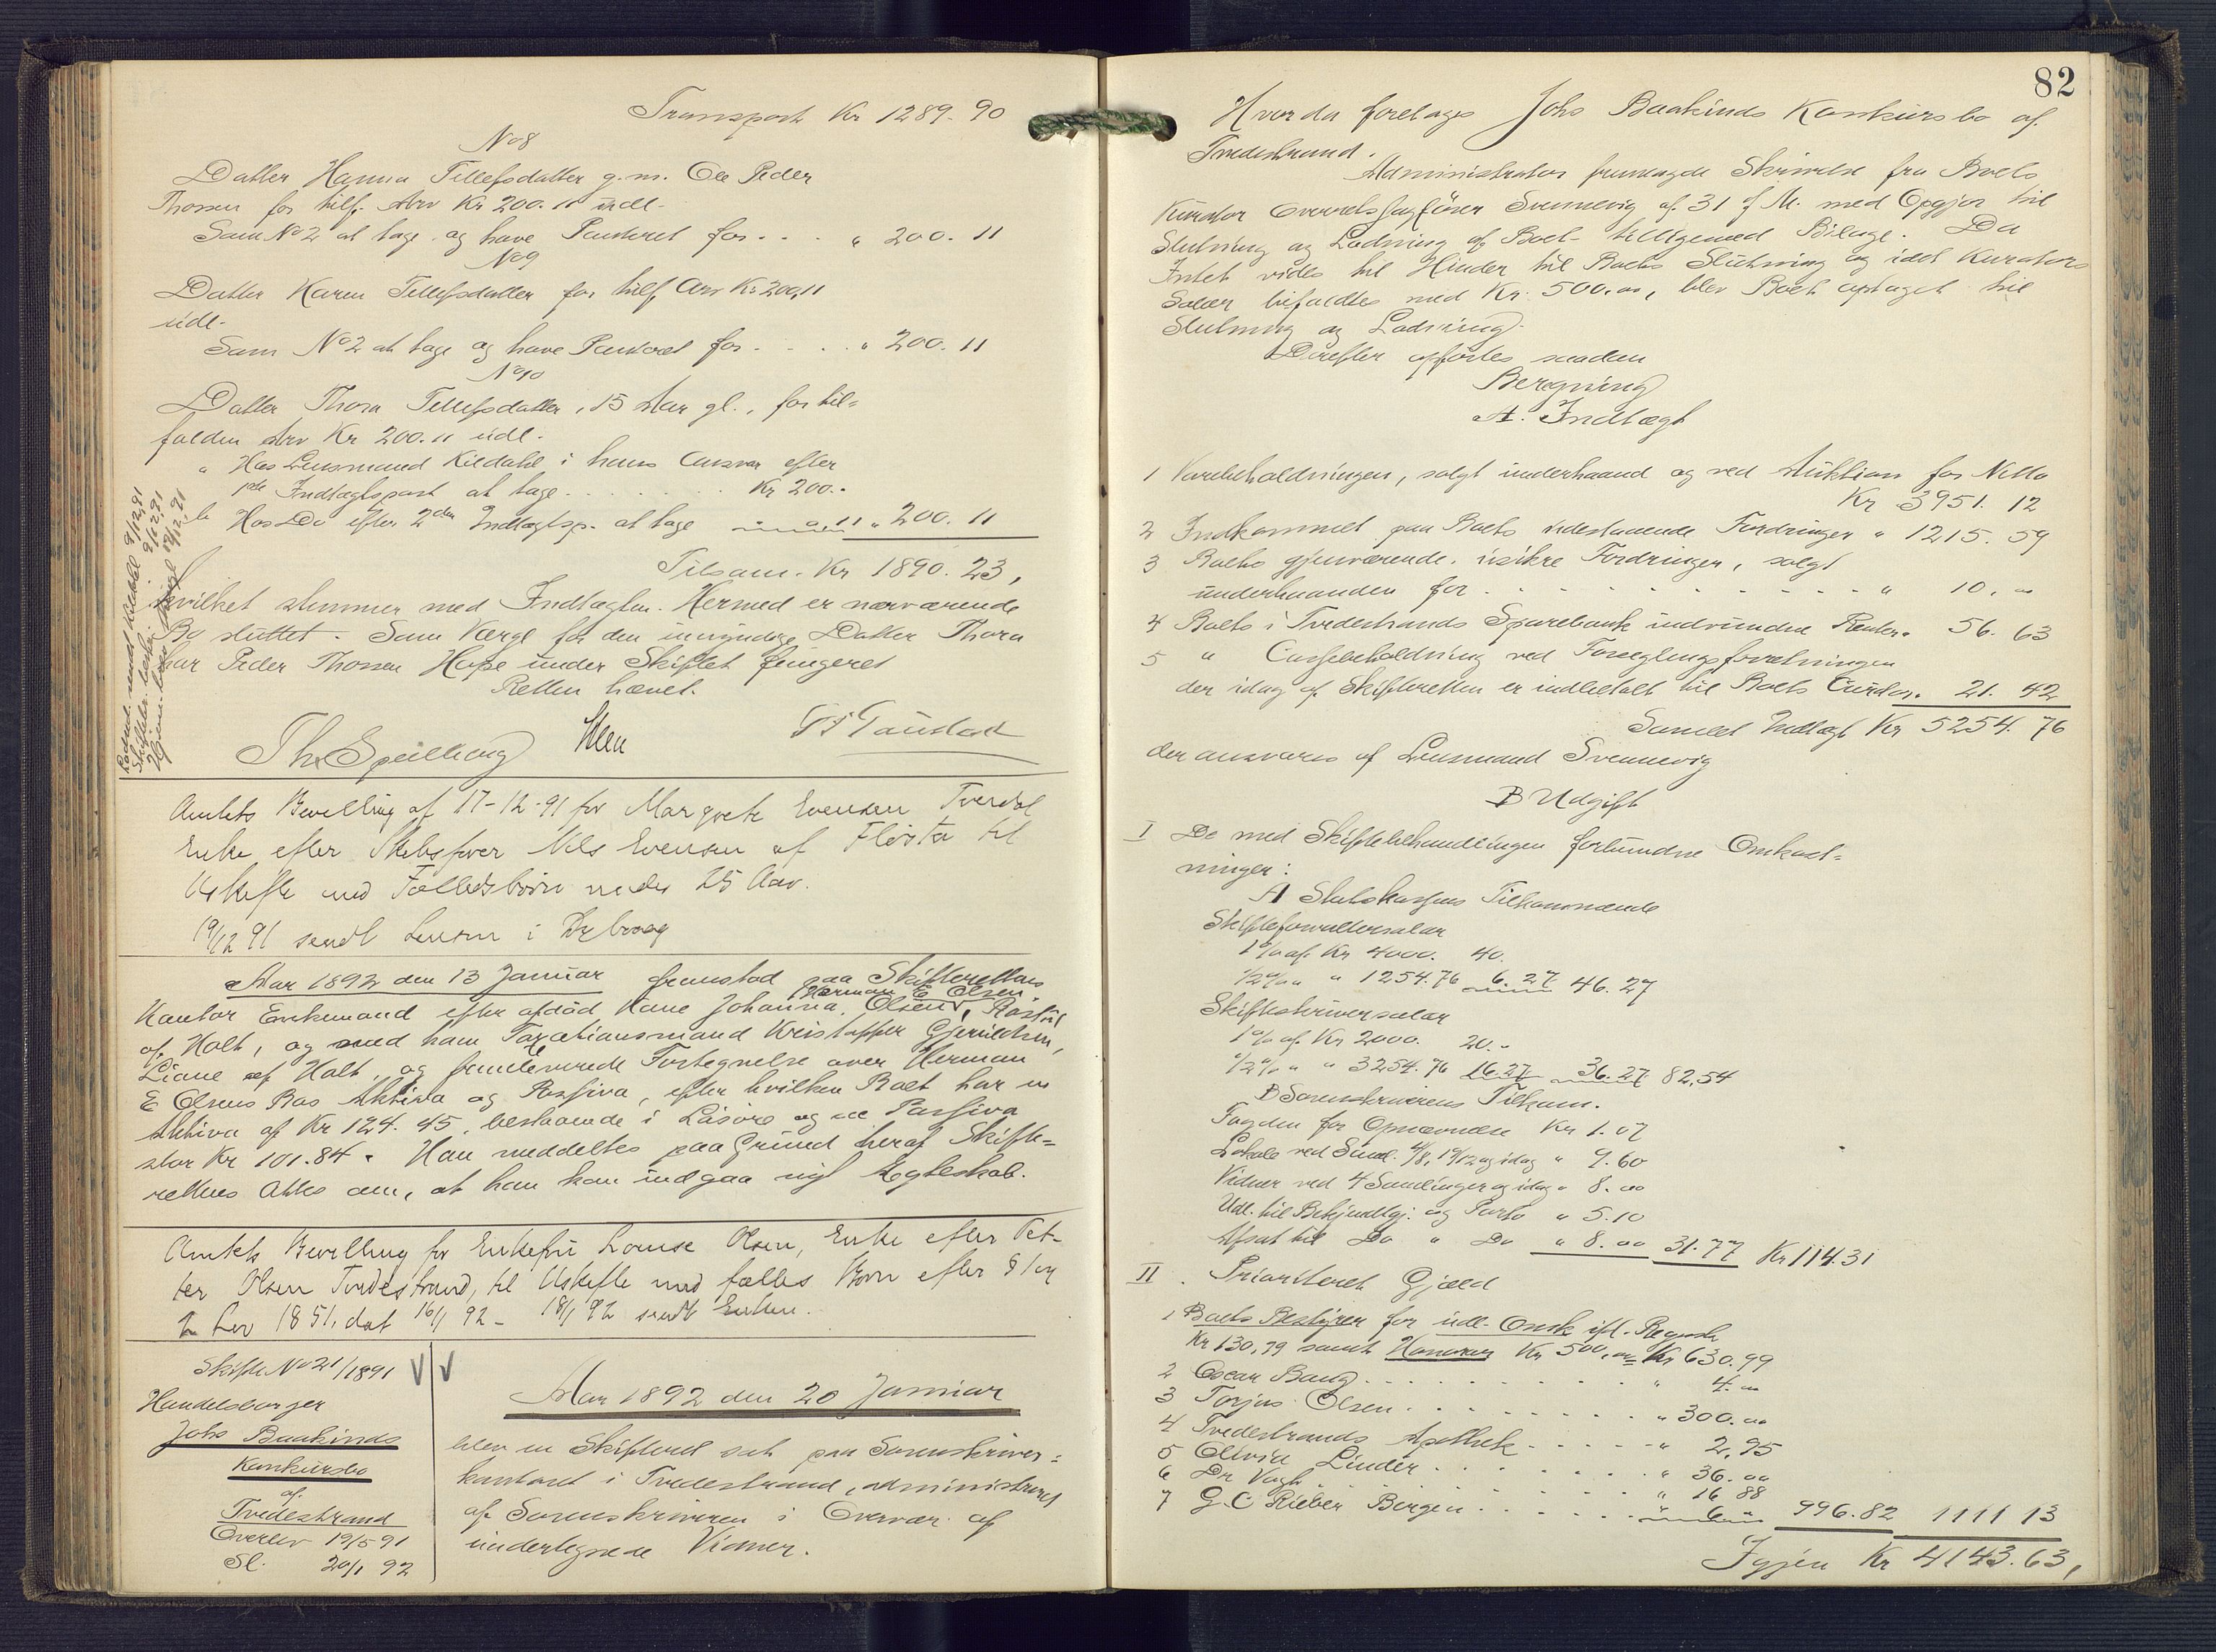 Transport Kr 1289.90
No 8
Datter Hanna Tellefsdatter g.m. Ole Peder
Thorsen for tilf. Arv Kr 200.11 udl.
Som No 2 at tage og have Panteret for . . . " 200.11
No 9
Datter Karen Tellefsdatter for tilf. Arv Kr 200,11
udl.
Som No 2 at tage og have Panteret for . . . . " 200.11
No 10
Datter Thora Tellefsdatter, 15 Aar gl., for til=
falden Arv Kr 200.11 udl.
a Hos Lensmand Kildahl i hans Ansvar efter
1ste Indtægtspost at tage . . . . . . Kr 200.-
b Hos Do efter 2den Indtægtsp. at tage " 0,11 " 200.11
Tilsam. Kr 1890.23,
hvilket stemmer med Indtægten. Hermed er nærværende
Bo sluttet. Som Værge for den umyndige Datter Thora
har Peder Thorsen Hope under Skiftet fungeret
Retten hævet.
Amtets Bevilling af 17-12-91 for Margrete Evensen Tverdal
Enke efter Skibsfører Nils Evensen af Flosta til
Uskifte med Fællesbørn under 25 Aar.
19/12 91 sendt Lensm i Dybvaag
Aar 1892 den 13 Januar fremstod paa Skifterettens
Kontor Enkemand efter afdød Kone Johanna Olsen, Herman E Olsen, Røstøl
af Holt, og med ham Taxationsmand Kristoffer Gjeruldsen,
Liane af Holt, og fremleverede Fortegnelse over Herman
E Olsens Bos Aktiva og Passiva, efter hvilken Boet har en
Aktiva af Kr 124.45, bestaaende i Løsøre og en Passiva
stor Kr 101.84. Han meddeltes paa Grund heraf Skifte=
rettens Attes om, at han kan indgaa nyt Ægteskab.
Amtets Bevilling for Enkefru Louise Olsen, Enke efter Pet-
ter Olsen Tvedestrand, til Uskifte med fælles Børn efter
Lov 1851, dat 16/1 92 - 18/1 92 sendt Enken.
Skifte No 21/1891
Handelsborger
Johs Baakinds
Konkursbo
af
Tvedestrand
Overlev 19/5 91
Sl. 20/1 92
Aar 1892 den 20 Januar
blev en Skifteret sat paa Sorenskriver=
kontoret i Tvedestrand, administreret
af Sorenskriveren i Overvær af
undertegnede Vidner.
82
Hvorda foretages Johs Baakinds Konkursbo af
Tvedestrand.
Administrator fremlagde Skrivelse fra Boets
Kurator Overretssagfører Svennevig af 31 f. M. med Opgjør til
Slutning og Lodning af Boet tilligemed Bilage. Da
Intet vides til Hinder til Boets Slutning og idet Kurators
Salær bifaldtes med Kr. 500.00, blev Boet optaget til
Slutning og Lodning.
Derefter opførtes saadan
Beregning
A. Indtægt
1 Varebeholdningen, solgt underhaand og ved Auktion for Netto
Kr 3951.12
2 Indkommet paa Boets udestaaende Fordringer " 1215.59
3 Boets gjenværende, usikre Fordringer, solgt
underhaanden for . . . . . . . . . . " 10.00
4 Boets i Tvedestrands Sparebank indvundne Renter " 56.63
5 " Cassebeholdning ved Forseglingsforretningen
der idag af Skifteretten er indbetalt til Boets Curator " 21.42
Samlet Indtægt Kr 5254.76
der ansvares af Lensmand Svennevig
B Udgift
I De med Skiftebehandlingen forbundne Omkost=
ninger:
A Statskassens Tilkommende
Skifteforvaltersalær
1% af Kr 4000. 40.
1/2% " " 1254.76 6.27 46.27
Skifteskriversalær
1% af Kr 2000. 20.-
1/2% " " 3254.76 16.27 36.27 82,54
B Sorenskriverens Tilkom.
for Opnævnelse Kr 1.07
Lokale ved Saml. 4/8, 19/12 og idag " 9.60
Vidner ved 4 Samlinger og idag " 8.00
Udl. til Bekjendtgj. og Porto " 5.10
Afsat til Do " Do " 8.00 31.77 Kr 114.31
II. Prioriteret Gjæld
1 Boets Bestyrer for udl. Omk ifl. Regnsk
Kr 130,99 samt Honorar Kr 500,00 Kr 630.99
2 Oscar Bang . . . . . . . . " 4.00
3 Torjus Olsen . . . . . . . " 300.00
4 Tvedestrands Apothek . . . . " 2,95
5 Linder . . . . . . " 36.00
6 Dr Vogt " 16 88
7 G.C Rieber Bergen . . . . . " 6.00 996.82 1111 13
Igjen Kr 4143.63,